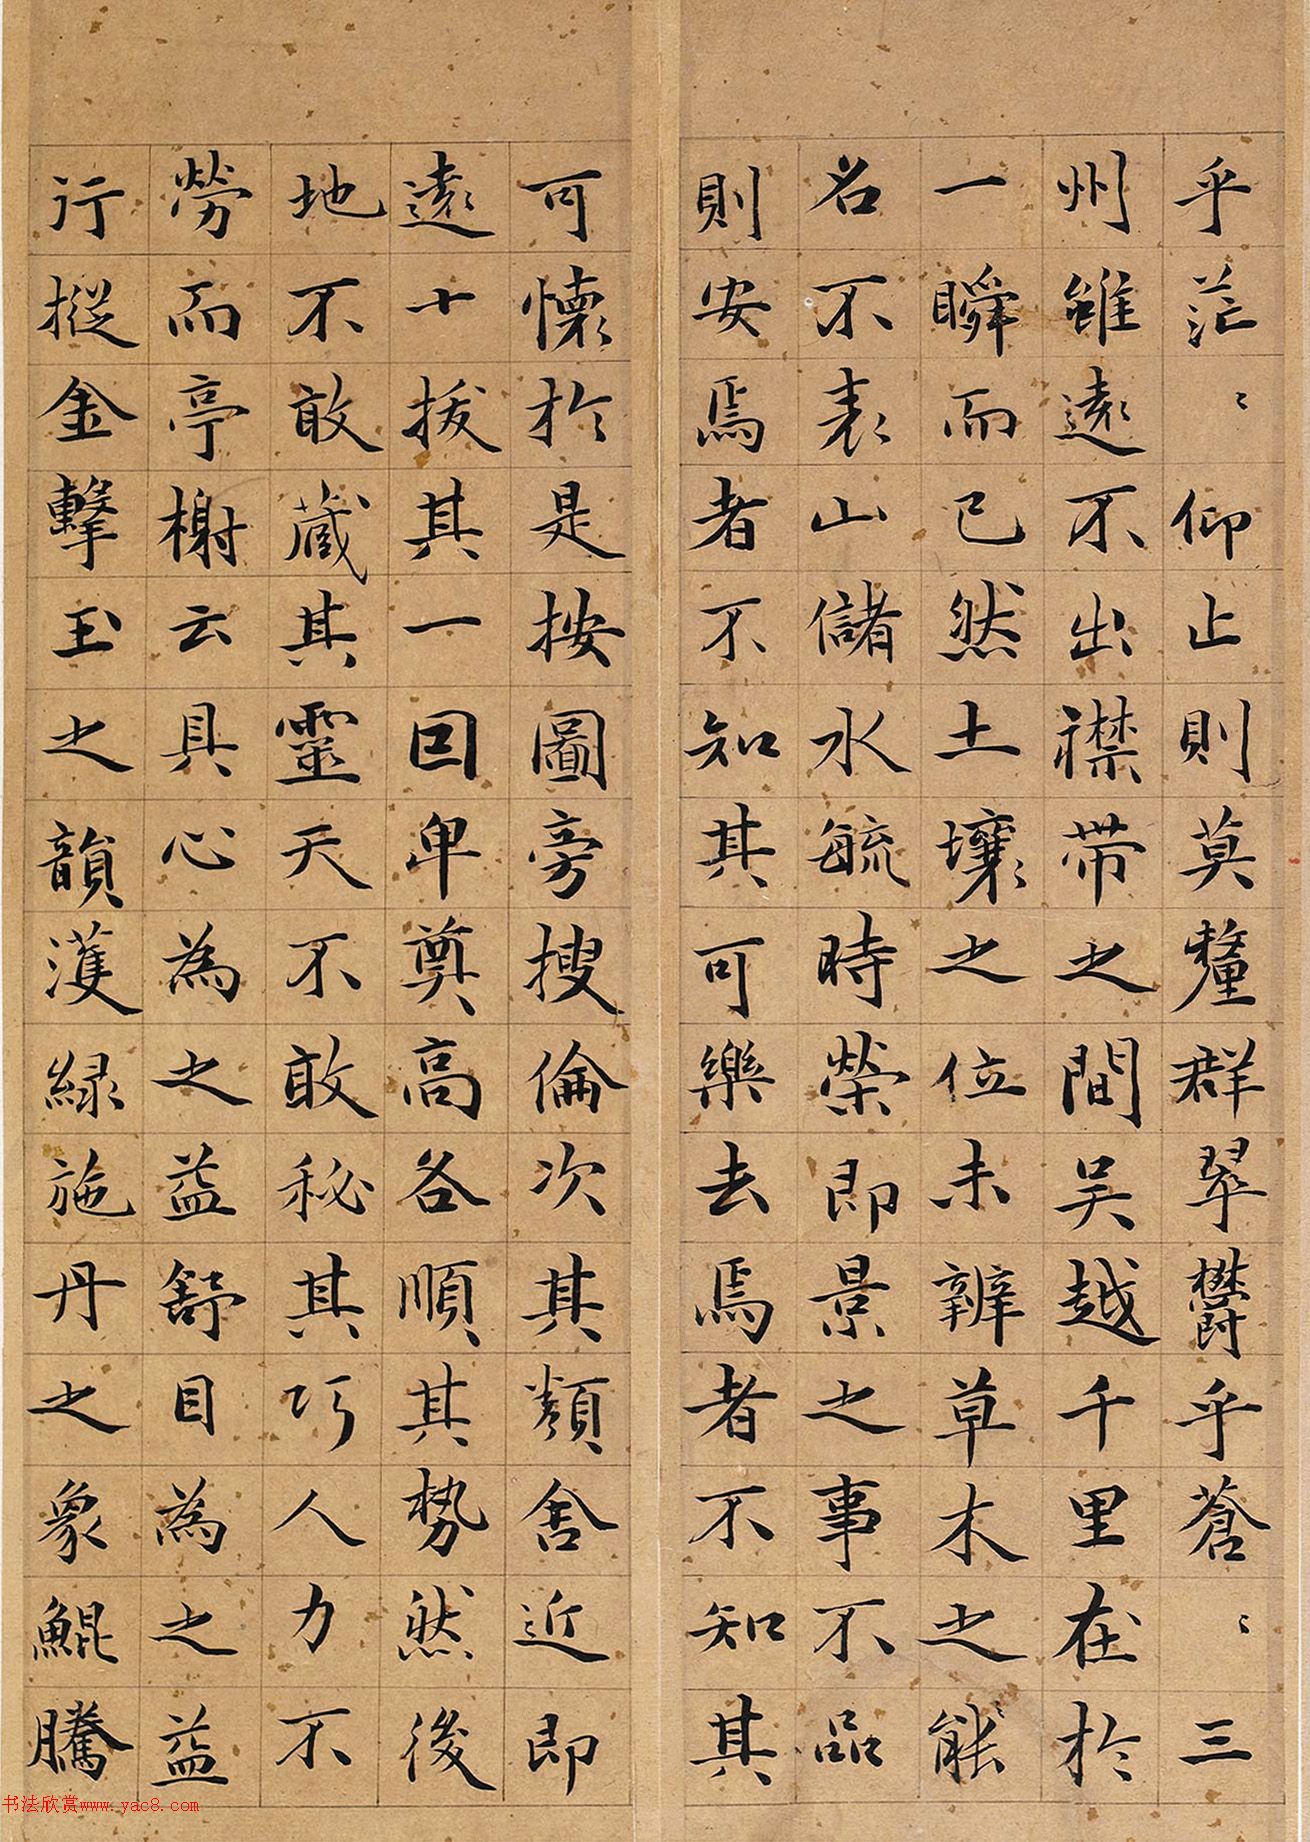 乎茫〻仰止則莫釐群翠欝乎蒼〻三
州雖遠不出襟帶之間吴越千里在於
一瞬而已然土壤之位未辨草木之能
名不表山儲水毓時榮即景之事不品
則安焉者不知其可樂去焉者不知其
可懷於是按圖旁搜倫次其類舍近即
遠十拔其一回卑奠高各順其勢然後
地不敢藏其靈天不敢秘其巧人力不
勞而亭榭云具心為之益舒目為之益
行摐金擊玉之韻濩緑施丹之象鯤騰
书法欣赏www.yac8.com